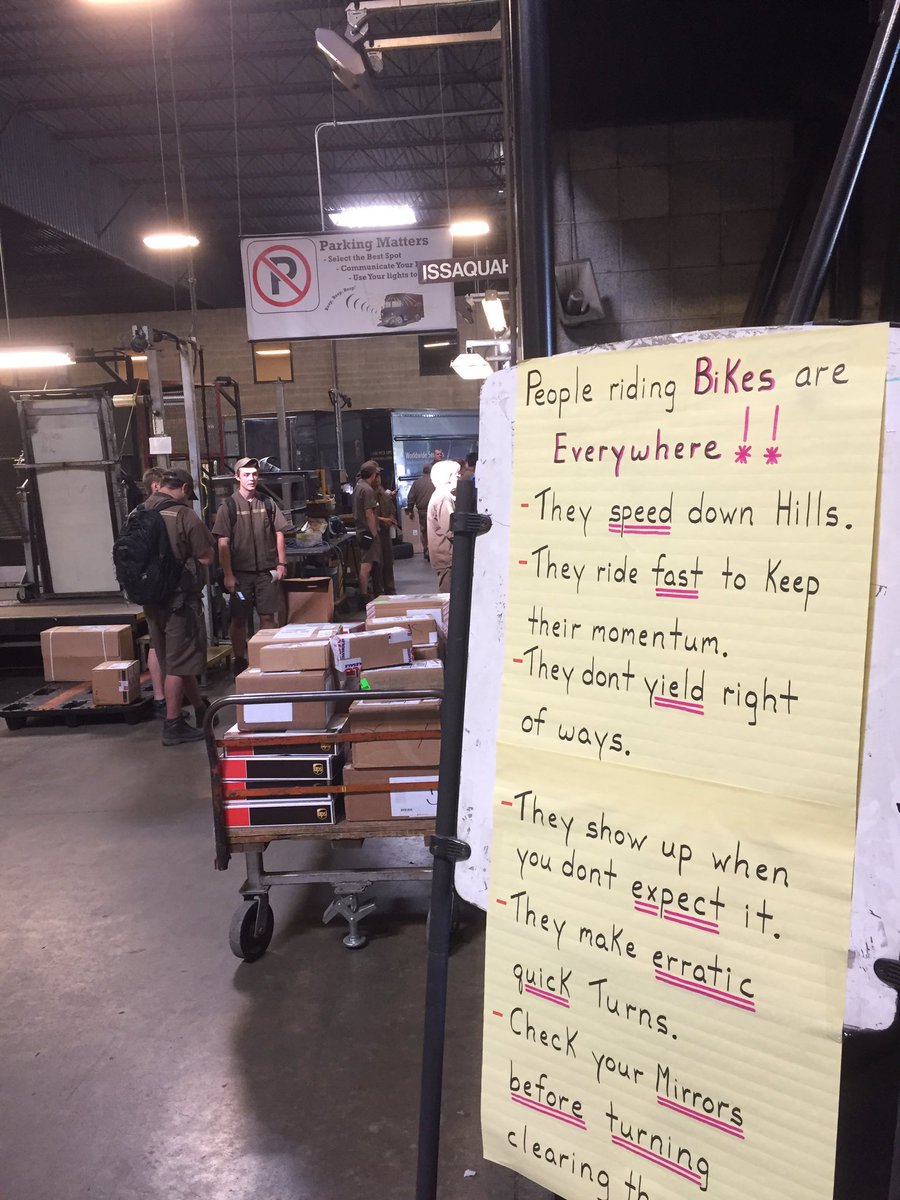 Parking Matters
- Select the Best Spot
- Communicate Your
- Use Your lights to
Beep, Beep, Beep!
P
ISSAQUAH
Worldwide
People riding BiKes are
Everywhere !!
- They speed down Hills.
- They ride fast to Keep
their momentum.
- They dont yield right
of ways.
- They show up when
you dont expect it.
- They make erratic
quick Turns.
- Check your Mirrors
before turning
clearing th
ups
ups
ups